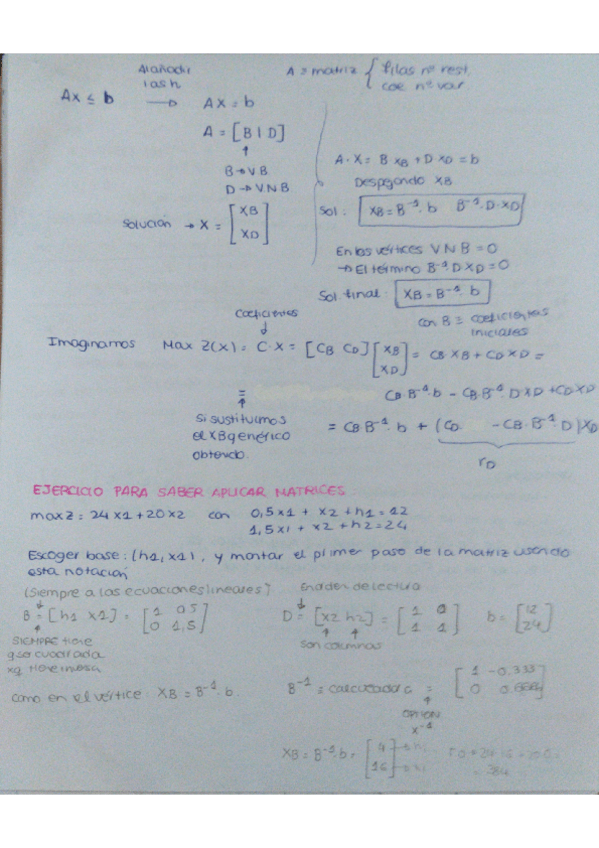 Al añadir
las h
A = matriz { filas nº rest.
col nº var
Ax ≤ b → Ax = b
A = [B | D]
↑
B → VB
D → VNB
Solución → X = [XB
XD]
A·X = B XB + D XD = b
Despejando XB
Sol: XB = B⁻¹·b B⁻¹·D·XD
En los vértices VNB = 0
→ El término B⁻¹DXD = 0
Sol. final: XB = B⁻¹·b
con B = coeficientes
iniciales
Coeficientes
↓
Imaginamos Max Z(x) = C·X = [CB CD] [XB
XD] = CB XB + CD XD =
= CB·B⁻¹·b - CB·B⁻¹·D XD + CD XD
↑
Si sustituimos
el XB genérico
obtenido.
= CB·B⁻¹·b + (CD - CB·B⁻¹·D) XD
rD
EJERCICIO PARA SABER APLICAR MATRICES
max z = 24x1 + 20x2 con 0,5x1 + x2 + h1 = 12
1,5x1 + x2 + h2 = 24
Escoger base: (h1, x1), y montar el primer paso de la matriz usando
esta notación
(Siempre a las ecuaciones lineares) En orden de lectura
B = [h1 x1] = [1 0,5
0 1,5]
D = [x2 h2] = [1 0
1 1]
b = [12
24]
SIEMPRE tiene
q ser cuadrada
xq tiene inversa
son columnas
como en el vértice XB = B⁻¹·b.
B⁻¹ = calculadora = [1 -0.333
0 0.666]
↑
OPTION
x⁻¹
XB = B⁻¹·b = [4
16]
384